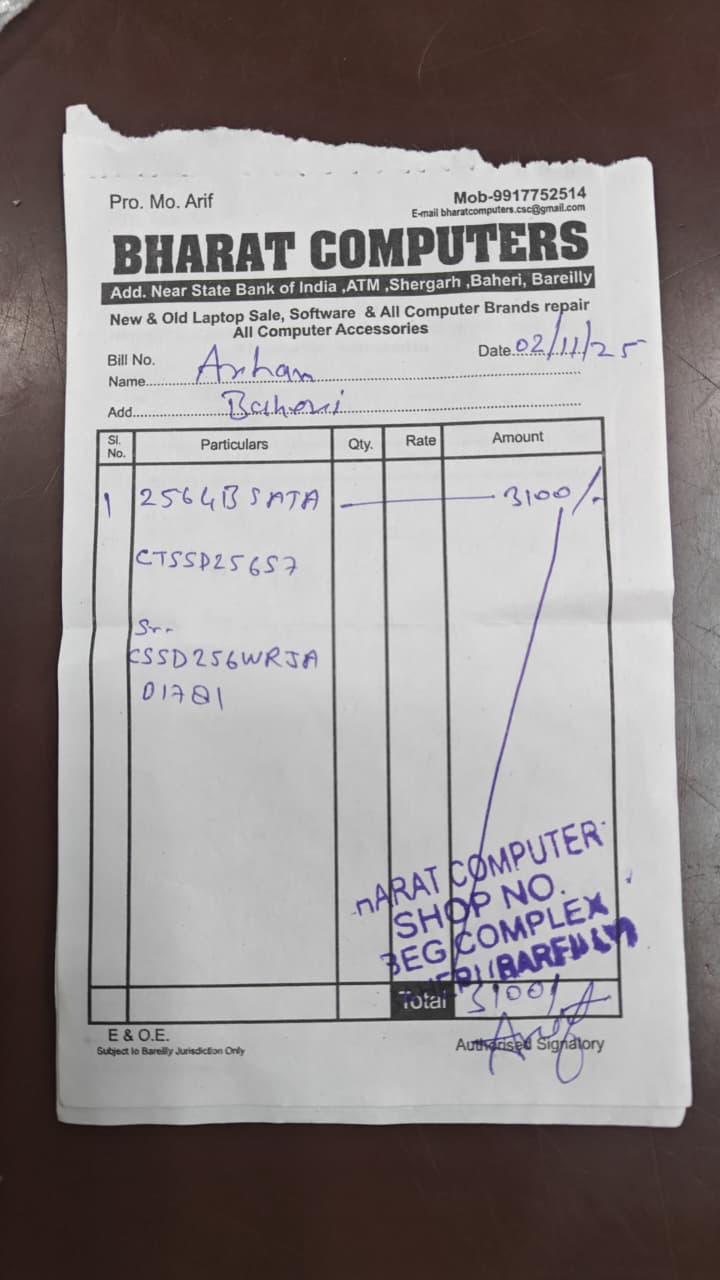 Pro. Mo. Arif
Mob-9917752514
E-mail bharatcomputers.csc@gmail.com
BHARAT COMPUTERS
Add. Near State Bank of India ,ATM ,Shergarh ,Baheri, Bareilly
New & Old Laptop Sale, Software & All Computer Brands repair
All Computer Accessories
Bill No.
Date 02/11/25
Name Arham
Add Baheri
Sl. No. Particulars Qty. Rate Amount
1 256GB SATA 3100/-
CTSSD256S7
Sr.-
CSSD256WRJA
01781
ARAT COMPUTER
SHOP NO.
BEG COMPLEX
Total 3100/-
E & O.E.
Subject to Bareilly Jurisdiction Only
Authorised Signatory